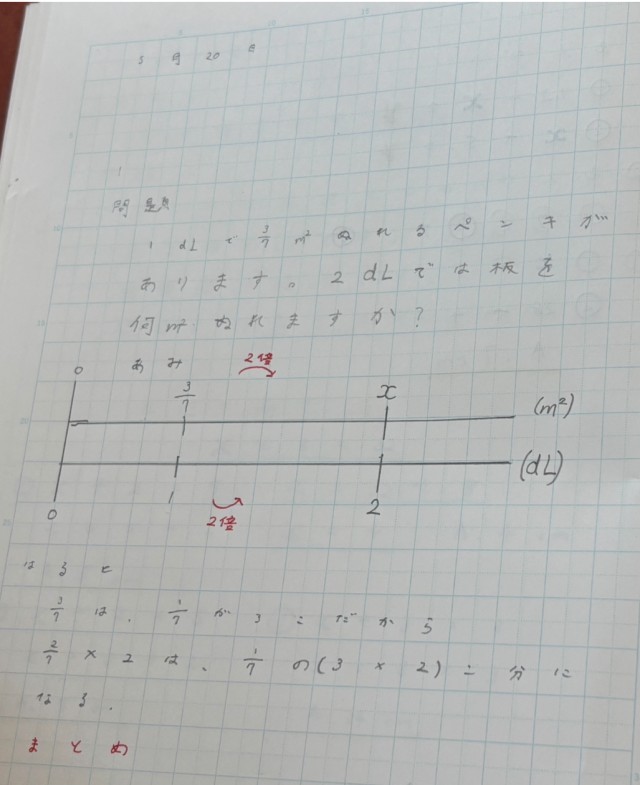 5月20日
問題
1dLで3/7m²ぬれるペンキが
あります。2dLでは板を
何m²ぬれますか?
2倍
0 3/7 x (m²)
(dL)
0 1 2
2倍
はると
3/7は、1/7が3こだから
2/7×2は、1/7の(3×2)こ分に
なる.
まとめ